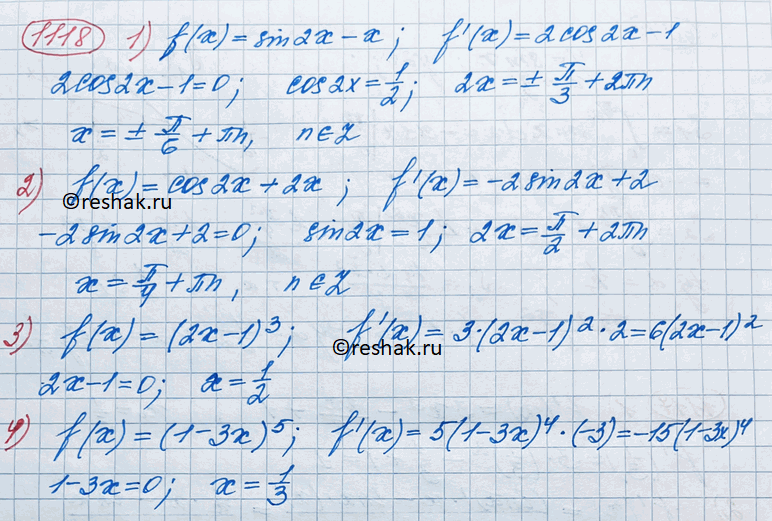 1118 1) f(x) = sin2x - x ; f'(x) = 2cos2x - 1
2cos2x - 1 = 0; cos2x = 1/2; 2x = ± π/3 + 2πn
x = ± π/6 + πn, n∈Z
2) f(x) = cos2x + 2x ; f'(x) = -2sin2x + 2
©reshak.ru
-2sin2x + 2 = 0; sin2x = 1; 2x = π/2 + 2πn
x = π/4 + πn, n∈Z
3) f(x) = (2x-1)³; f'(x) = 3·(2x-1)²·2 = 6(2x-1)²
©reshak.ru
2x-1 = 0; x = 1/2
4) f(x) = (1-3x)⁵; f'(x) = 5(1-3x)⁴·(-3) = -15(1-3x)⁴
1-3x = 0; x = 1/3